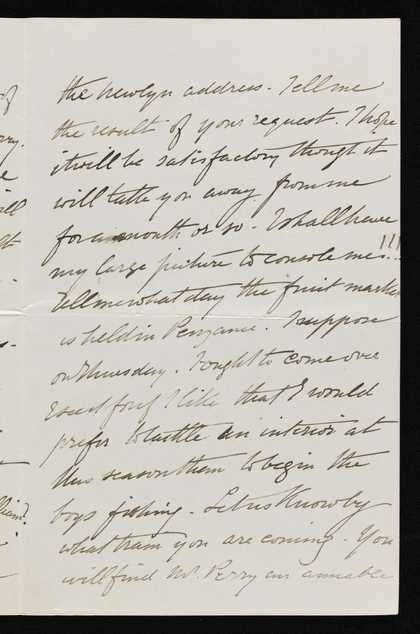 the Newlyn address. Tell me
the result of your request. I hope
it will be satisfactory though it
will take you away from me
for a month or so. I shall have
my large picture to console me...!!!
Tell me what day the fruit market
is held in Penzance. I suppose
on Thursday. I ought to come over
and if I like that I would
prefer to tackle an interior at
this season than to begin the
boys fishing. Let us know by
what train you are coming. You
will find Mr. Perry an amiable